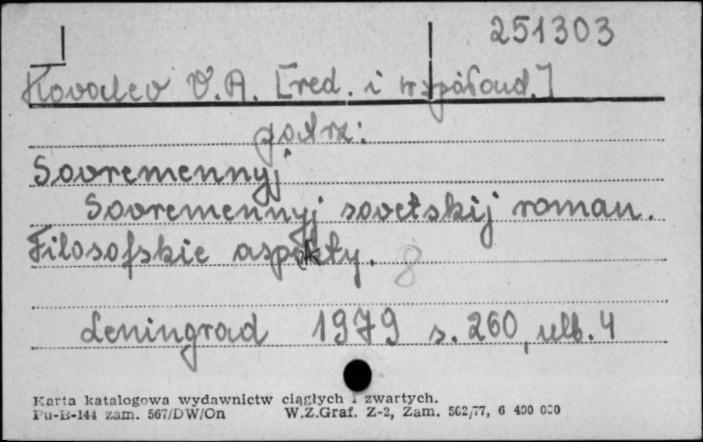 251303
Kovalev V. A. [red. i współaud.]
patrz:
Sovremennyj
Sovremennyj sovetskij roman.
Filosofskie aspekty. 8
Leningrad 1979 s. 260, ulb. 4
Karta katalogowa wydawnictw ciągłych i zwartych.
Pu-B-144 zam. 567/DW/On W.Z.Graf. Z-2, Zam. 502/77, 6 400 000